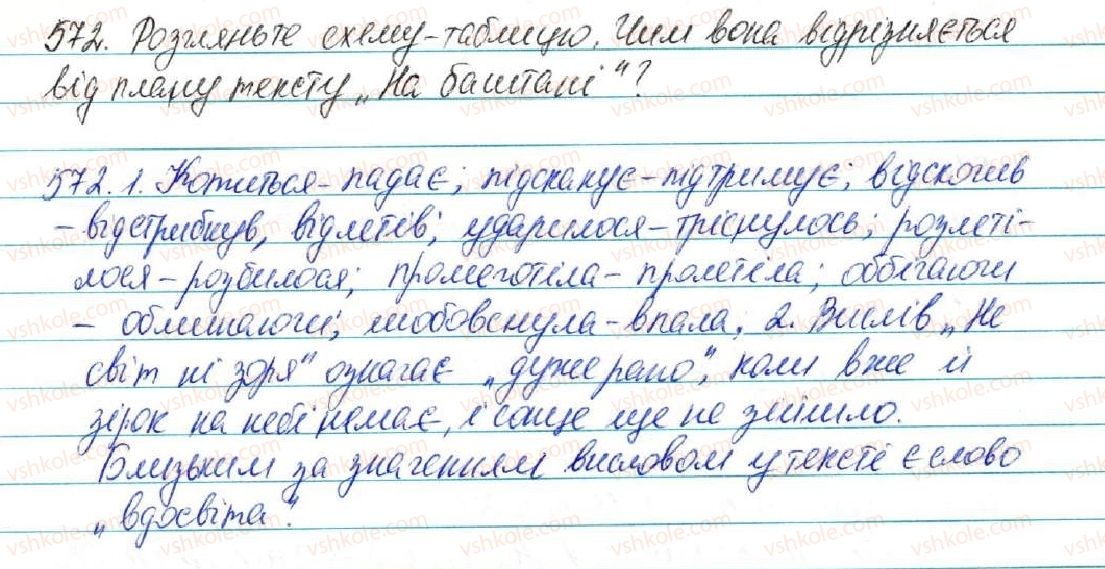 572. Розгляньте схему-таблицю. Чим вона відрізняється
від плану тексту „На баштані"?
572. 1. Котиться - падає; підскакує - підтримує; відскочив
- відстрибнув, відлетів; ударилося - тріснулось; розлеті-
лося - розбилося; промеготіла - пролетіла; оббігаючи
- облишаючи; шобовснула - впала; 2. Вислів „Не
світ ні зоря" означає „дуже рано", коли вже й
зірок на небі немає, і сонце ще не зійшло.
Близьким за значенням висловом у тексті є слово
„вдосвіта".